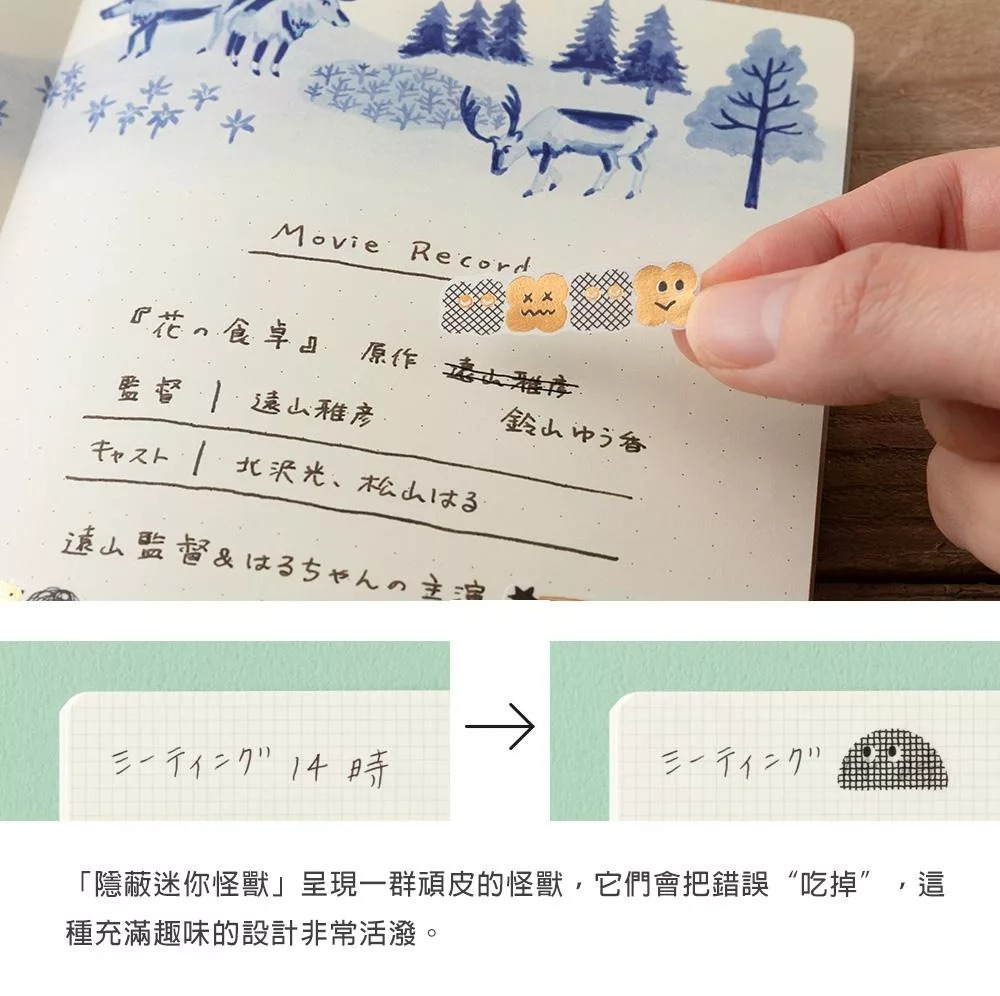 Movie Record
『花の食卓』 原作 遠山雅彦
鈴山ゆう香
監督 | 遠山雅彦
キャスト | 北沢光、松山はる
遠山監督&はるちゃんの主演
ミーティング 14時
ミーティング
「隱蔽迷你怪獸」呈現一群頑皮的怪獸，它們會把錯誤“吃掉”，這
種充滿趣味的設計非常活潑。